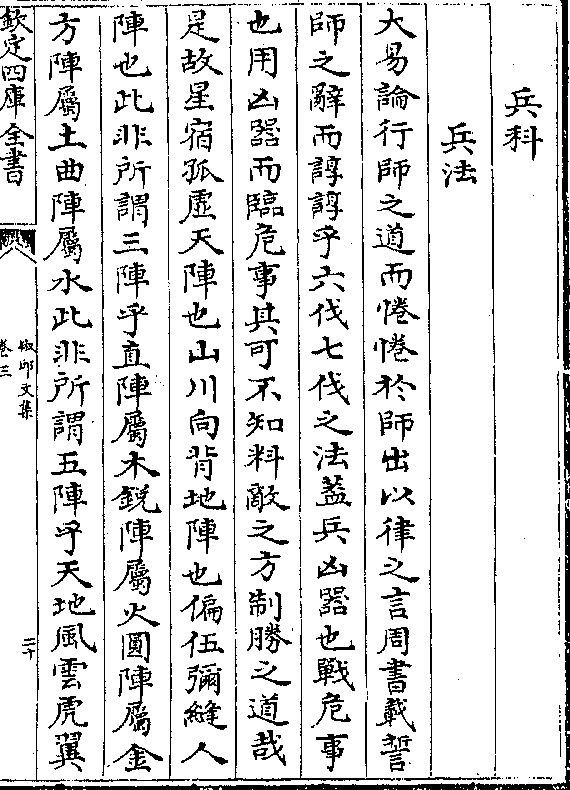 兵科
兵法
大易論行師之道而惓惓於師出以律之言周書載誓
師之辭而諄諄乎六伐七伐之法蓋兵凶器也戰危事
也用凶器而臨危事其可不知料敵之方制勝之道哉
是故星宿孤虛天陣也山川向背地陣也偏伍彌縫人
陣也此非所謂三陣乎直陣屬木銳陣屬火圓陣屬金
方陣屬土曲陣屬水此非所謂五陣乎天地風雲虎翼
欽定四庫全書
文集
卷三
二十